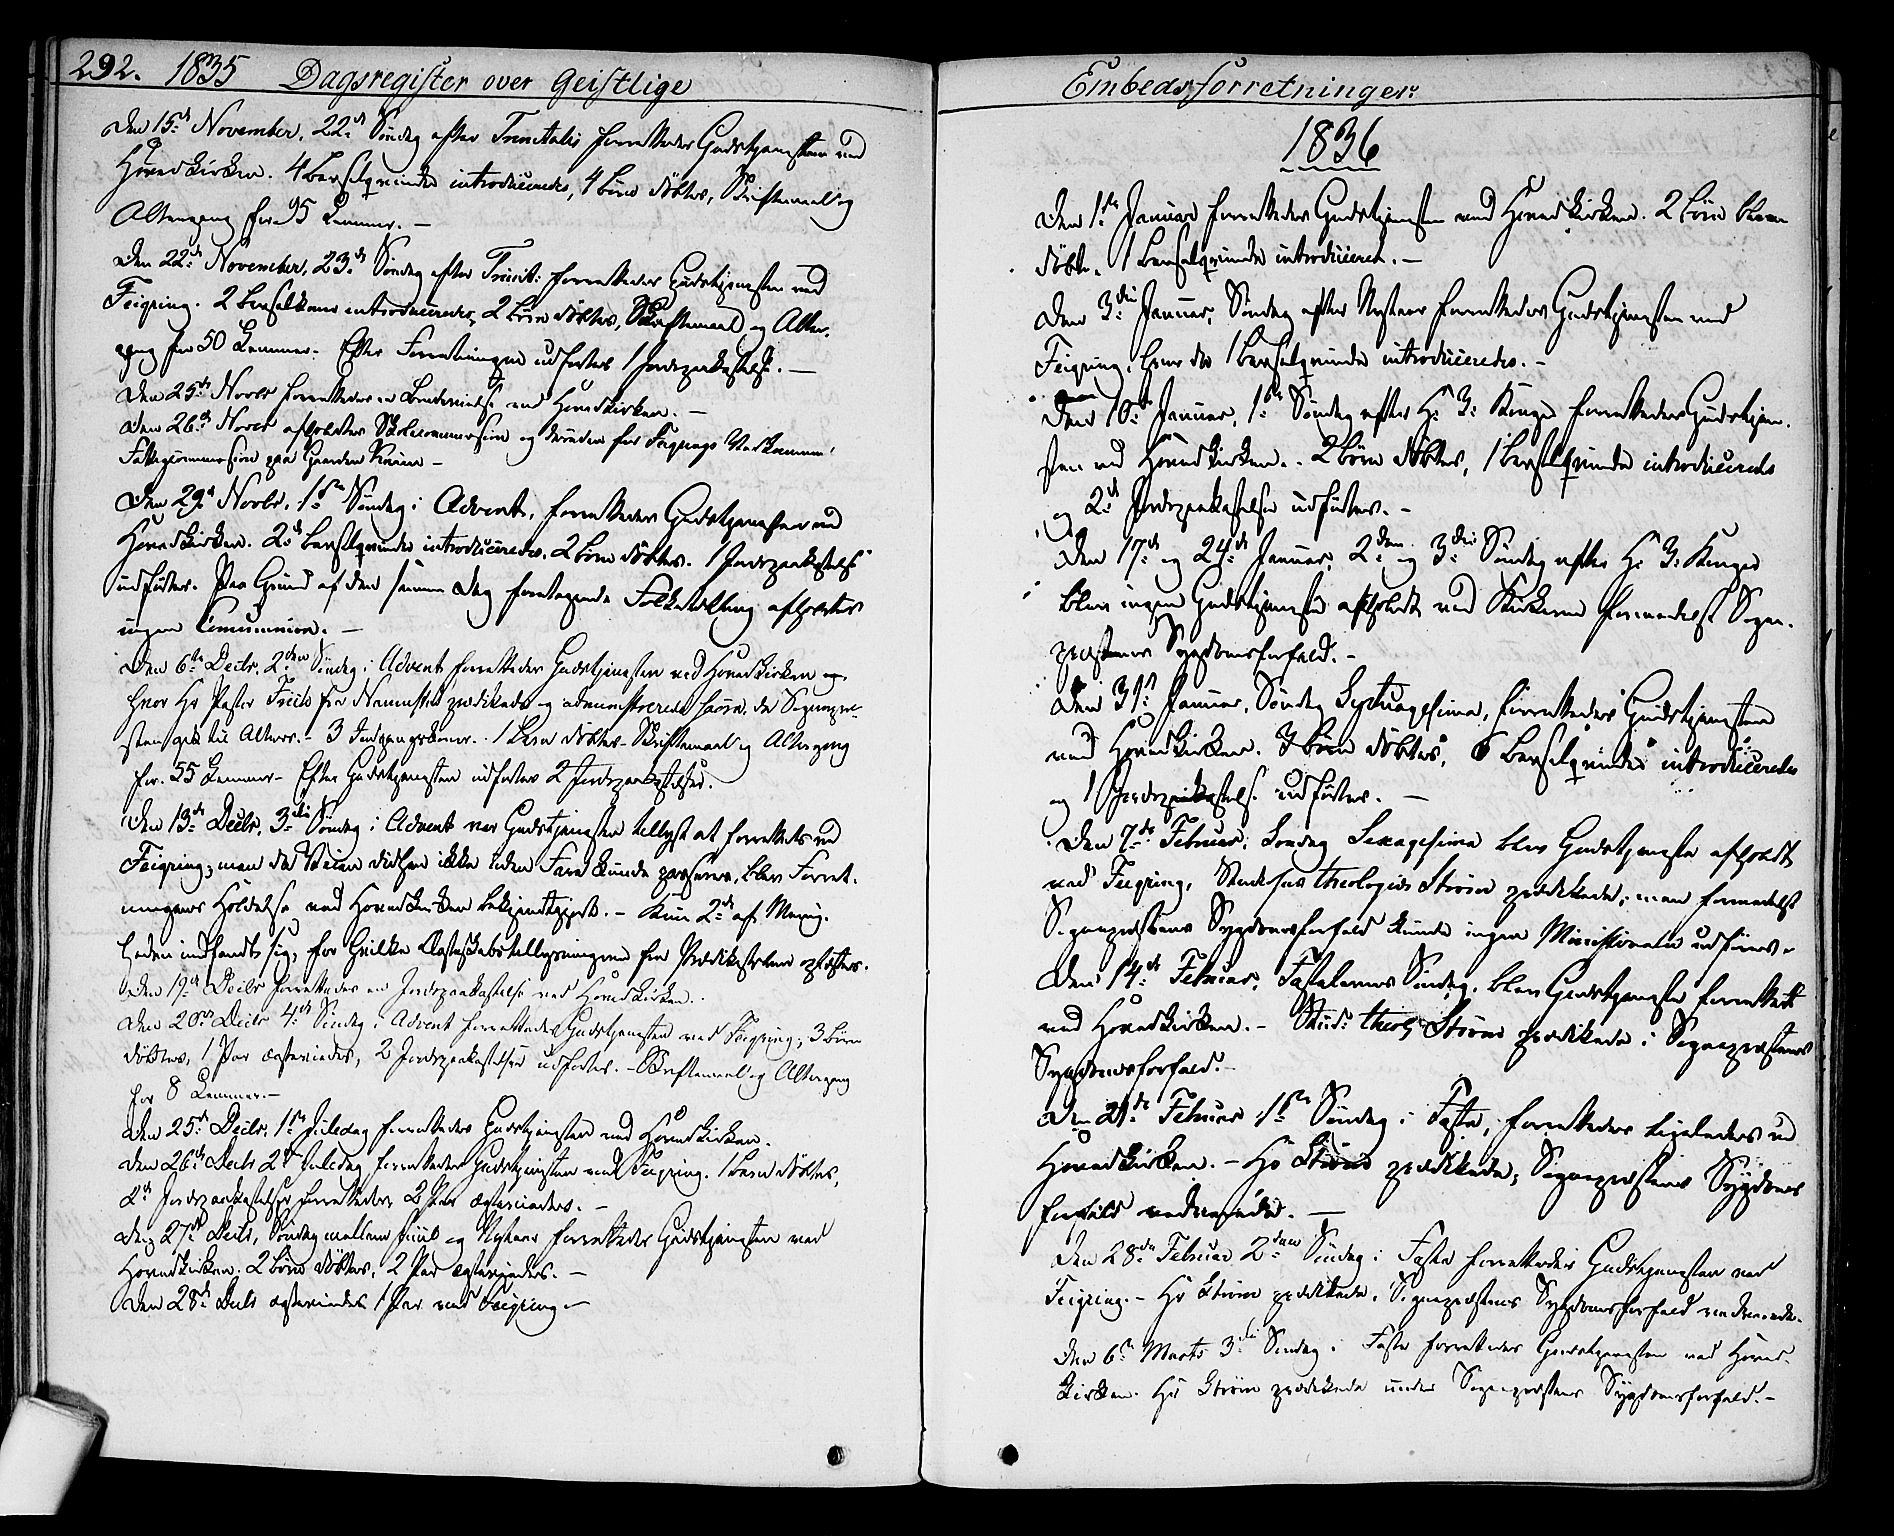 292. 1835 Dagsregister over Geistlige
Den 15de November, 22de Søndag efter Trinitatis forrettedes Gudstjenesten ved
Hovedkirken. 4 Barselqvinder introduceredes, 4 Børn døbtes, Skriftemaal og
Altergang for 95 Lemmer. —
Den 22de November, 23de Søndag efter Trinit: forrettedes Gudstjenesten ved
Feigring. 2 Barselkoner introduceredes, 2 Børn døbtes, Skriftemaal og Alter-
gang for 50 Lemmer. Efter Forretningen udførtes 1 Jordpaakastelse. —
Den 25de Novbr forrettedes en Brudevielse ved Hovedkirken. —
Den 26de Novbr afholdtes Skolecommission og desuden for Feigrings Vedkommen-
Fattigcommission paa Gaarden —
Den 29de Novbr, 1ste Søndag i Advent, forrettedes Gudstjenesten ved
Hovedkirken. 2de Barselqvinder introduceredes. 2 Børn døbtes. 1 Jordpaakastelse
udførtes. Paa Grund af den samme Dag foretagende Folketælling afholdtes
ingen Communion. —
Den 6te Decbr, 2den Søndag i Advent forrettedes Gudstjenesten ved Hovedkirken og
hvor Hr Pastor fra Nannestad prædikede og administrerede Sacra, da Sognepre-
sten gik til Alters. – 3 . 1 Barn døbtes – Skriftemaal og Altergang
for 55 Lemmer – Efter Gudstjenesten udførtes 2 Jordpaakastelser.
Den 13de Decbr, 3die Søndag i Advent var Gudstjenesten tillyst at forrettes ved
Feigring; men da Veien didhen ikke uden Fare kunde passeres, blev Forret-
ningens Holdelse ved Hovedkirken bekjendtgjort. – Kun 2de af Menig-
heden indfandt sig, for hvilke fra Prædikestolen oplæstes.
Den 19de Decbr forrettedes en Jordpaakastelse ved Hovedkirken.
Den 20de Decbr 4de Søndag i Advent forrettedes Gudstjenesten ved Feigring; 3 Børn
døbtes, 1 Par ægteviedes, 2 Jordpaakastelser udførtes. – Skriftemaal og Altergang
for 8 Lemmer. —
Den 25de Decbr, 1ste Juledag forrettedes Gudstjenesten ved Hovedkirken.
Den 26de Decbr 2d Juledag forrettedes Gudstjenesten ved Feigring. 1 Barn døbtes,
2de Jordpaakastelser forrettedes, 2 Par ægteviedes. —
Den 27de Decbr, Søndag mellem Juul og Nytaar forrettedes Gudstjenesten ved
Hovedkirken. 2 Børn døbtes, 2 Par ægteviedes. —
Den 28de Decbr ægteviedes 1 Par ved Feigring. —
Embedsforretninger.
1836
Den 1ste Januar forrettedes Gudstjenesten ved Hovedkirken. 2 Børn bleve
døbte, 1 Barselqvinde introduceret. —
Den 3die Januar, Søndag efter Nytaar forrettedes Gudstjenesten ved
Feigring, hvor da 1 Barselqvinde introduceredes. —
Den 10de Januar, 1ste Søndag efter H: 3: Konger forrettedes Gudstjene-
sten ved Hovedkirken. 2 Børn døbtes, 1 Barselqvinde introduceredes
og 2de Jordpaakastelser udførtes. —
Den 17de og 24de Januar, 2den og 3die Søndag efter H: 3: Konger
blev ingen Gudstjeneste afholdt ved Kirkerne formedelst Sogne-
præstens Sygdomsforfald. —
Den 31te Januar, Søndag Septuagesima, forrettedes Gudstjenesten
ved Hovedkirken. 3 Børn døbtes, 6 Barselqvinder introduceredes
og 1 Jordpaakastelse udførtes. —
Den 7de Februar, Søndag Sexagesima blev Gudstjeneste afholdt
ved Feigring, Studiosus theologiæ Strøm prædikede; men formedelst
Sognepræstens Sygdomsforfald kunde ingen Ministerialia udføres.
Den 14de Februar, Fastelavns Søndag, blev Gudstjeneste forrettet
ved Hovedkirken. – Stud: theol: Strøm prædikede i Sognepræstens
Sygdomsforfald. –
Den 21de Februar 1ste Søndag i Faste, forrettedes ligeledes ved
Hovedkirken. – Hr Strøm prædikede, Sognepræstens Sygdoms
forfald vedvarede. —
Den 28de Februar 2den Søndag i Faste forrettedes Gudstjenesten ved
Feigring. – Hr Strøm prædikede, Sognepræstens Sygdomsforfald vedvarede.
Den 6te Marts 3die Søndag i Faste forrettedes Gudstjenesten ved Hoved-
kirken. Hr Strøm prædikede under Sognepræstens Sygdomsforfald. –